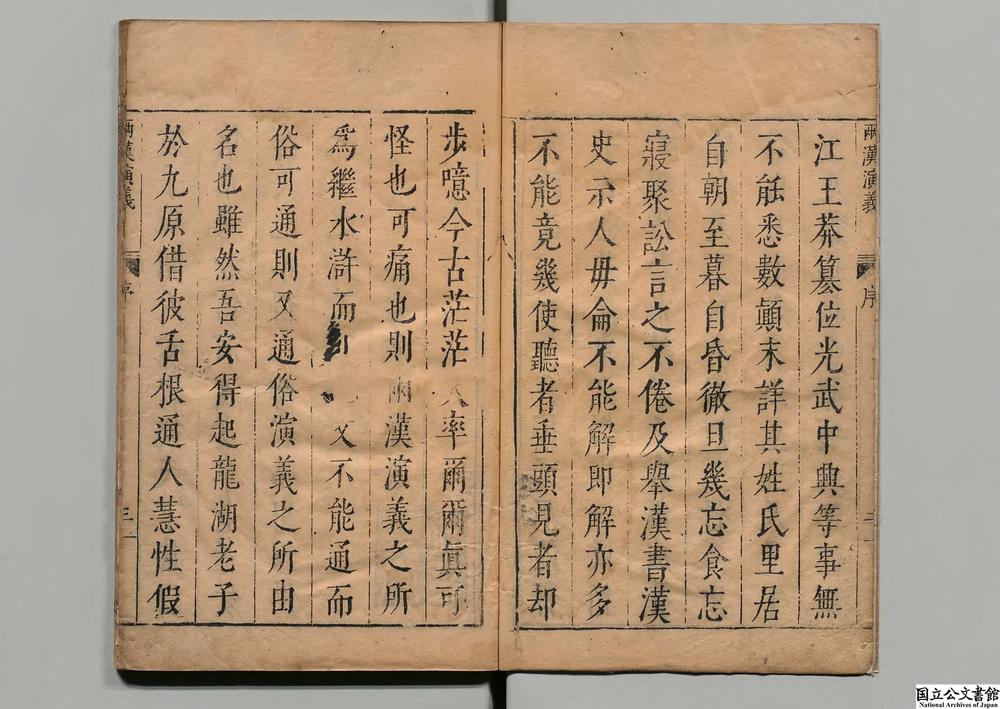 兩漢演義 序 二
江王莽篡位光武中興等事無
不能悉數顛末詳其姓氏里居
自朝至暮自昏徹旦幾忘食忘
寢聚訟言之不倦及舉漢書漢
史示人毋侖不能解即解亦多
不能竟幾使聽者垂頭見者却
步噫今古茫茫大率爾爾眞可
怪也可痛也則兩漢演義之所
爲繼水滸而 文不能通而
俗可通則又通俗演義之所由
名也雖然吾安得起龍湖老子
於九原借彼舌根通人慧性假
兩漢演義 序 三
国立公文書館
National Archives of Japan